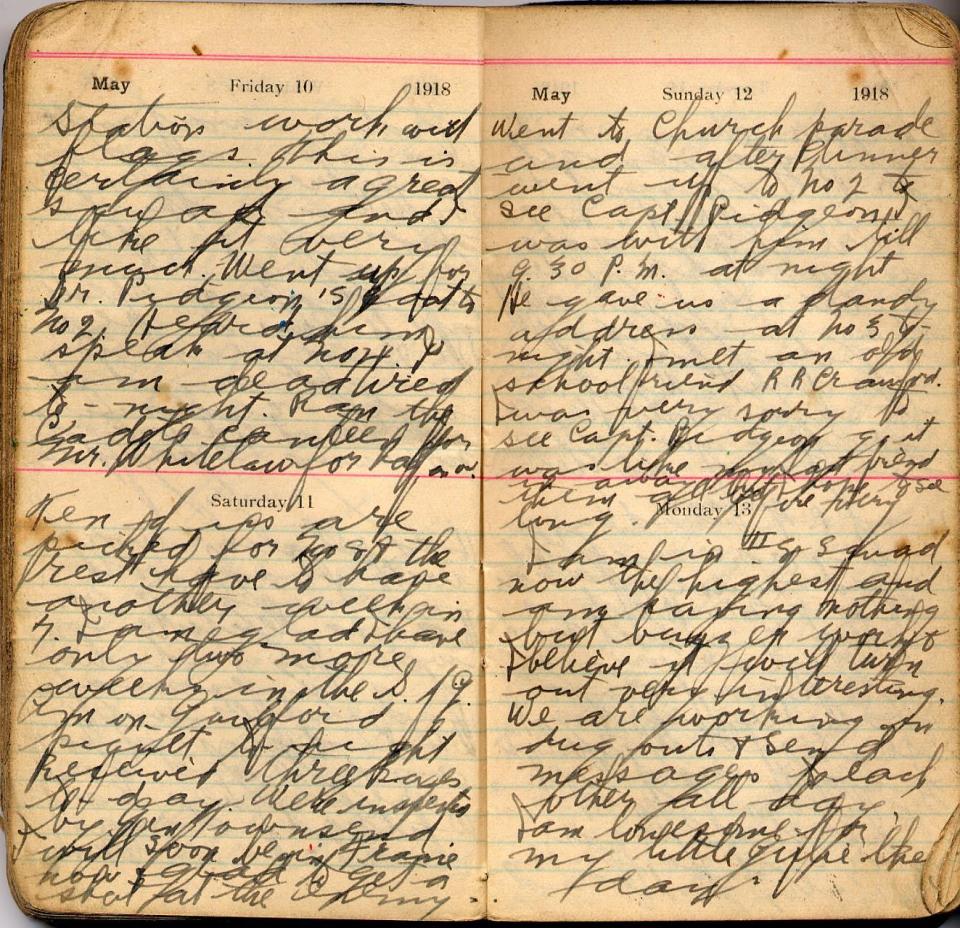 May Friday 10 1918
Station work with
flags. This is
certainly a great
and I
like it very
much. Went up for
Dr. Pidgeon's to
No 2. Heard him
speak at No 4. I
am dead tired
to-night. Ran the
Canteen for
Mr. Whitelaw for half an
Saturday 11
Ken of us are
picked for the
rest have to have
another week in
7. I am glad I have
only two more
weeks in the S.
Am on
piquet to night
Received three
to-day. Were inspected
by Gen Townsend
will soon be in France
now & glad to get a
shot at the enemy.
May Sunday 12 1918
Went to Church parade
and after dinner
went up to No 2 to
see Capt Pidgeon I
was with him till
9.30 P.M. at night
He gave us a dandy
address at No 3 to-
night. I met an old
school friend R R Crawford.
I was very sorry to
see Capt. Pidgeon go it
was like my last friend
them all before very
long.
Monday 13
I am in III G Squad
now the highest and
am having nothing
but buzzer work
I believe it will turn
out very interesting.
We are working in
dug outs & send
messages to each
other all day
I am lonesome for
my little girlie the
day